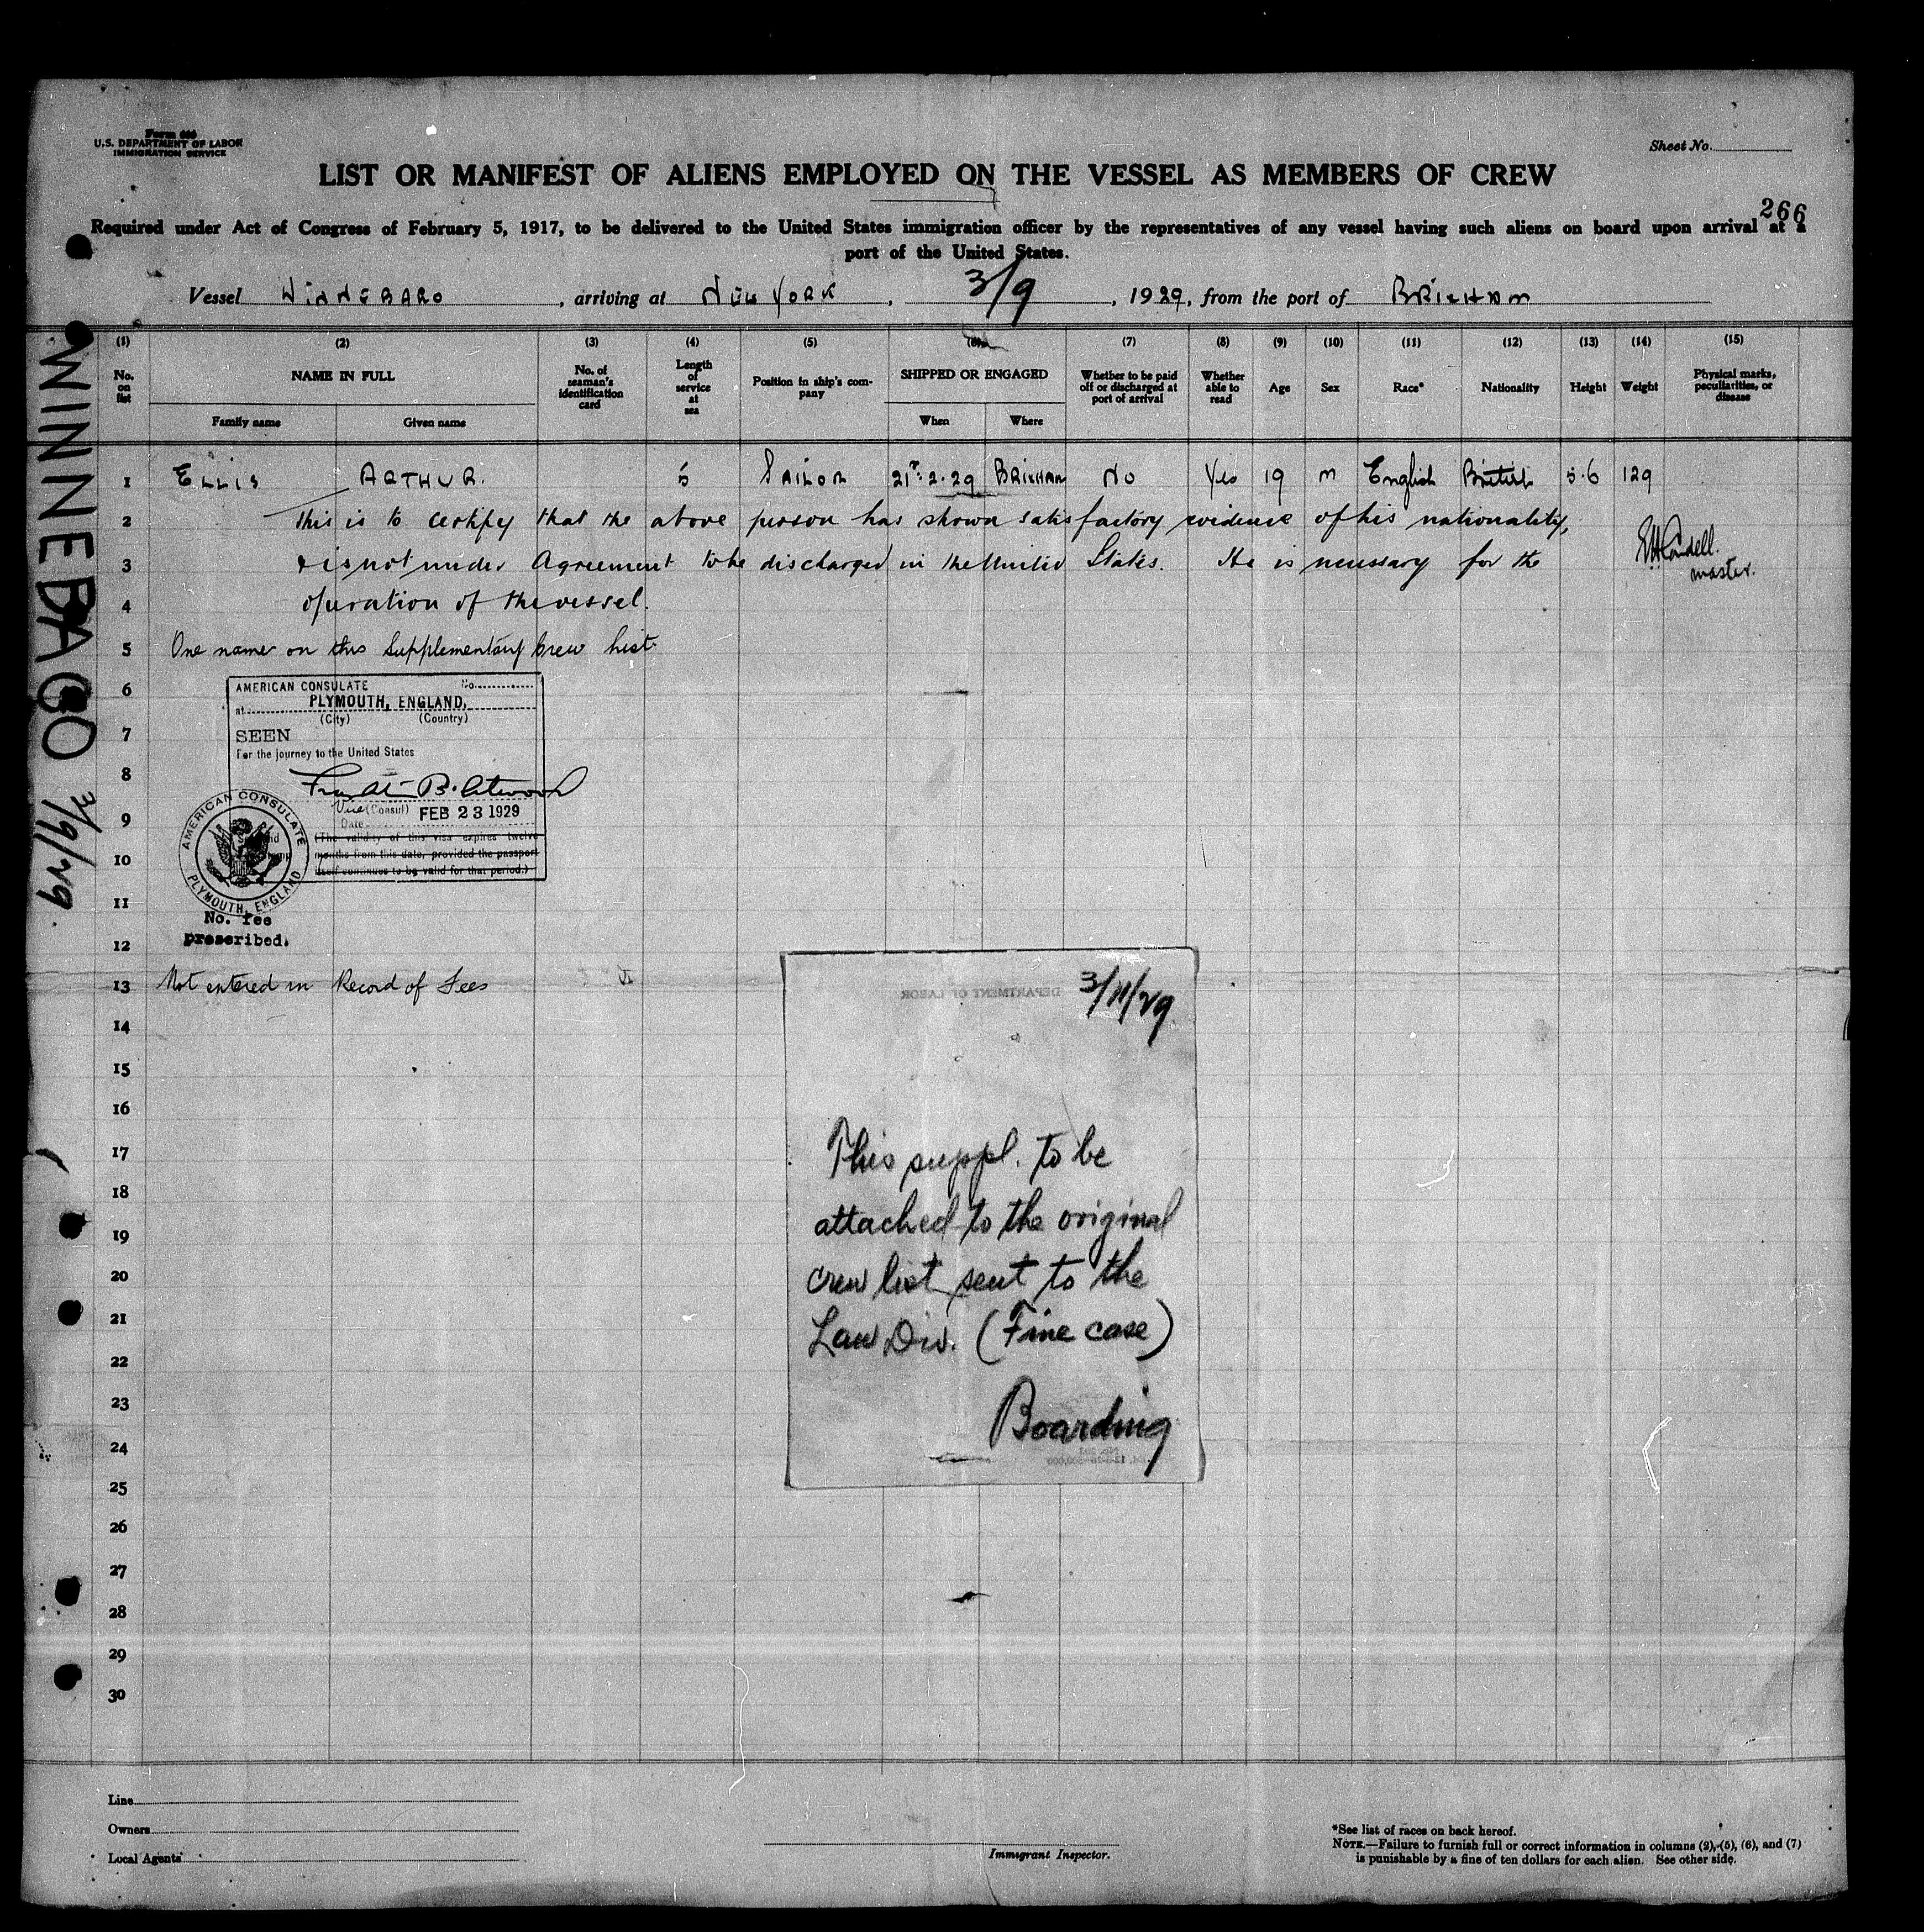 Form 686
U.S. DEPARTMENT OF LABOR
IMMIGRATION SERVICE
Sheet No.
LIST OR MANIFEST OF ALIENS EMPLOYED ON THE VESSEL AS MEMBERS OF CREW
266
Required under Act of Congress of February 5, 1917, to be delivered to the United States immigration officer by the representatives of any vessel having such aliens on board upon arrival at a
port of the United States.
Vessel WINNEBAGO, arriving at NEW YORK, 3/9, 1929, from the port of BRIXHAM
(1) (2) (3) (4) (5) (6) (7) (8) (9) (10) (11) (12) (13) (14) (15)
No. on list NAME IN FULL Family name Given name No. of seaman's identification card Length of service at sea Position in ship's company SHIPPED OR ENGAGED When Where Whether to be paid off or discharged at port of arrival Whether able to read Age Sex Race* Nationality Height Weight Physical marks, peculiarities, or disease
1 ELLIS ARTHUR. 5 SAILOR 21st. 2. 29 BRIXHAM NO Yes 19 M English British 5.6 129
2 This is to certify that the above person has shown satisfactory evidence of his nationality,
3 & is not under Agreement to be discharged in the United States. He is necessary for the
master.
4 operation of the vessel.
5 One name on this Supplementary Crew List
6
7
8
9
10
11
12
AMERICAN CONSULATE No.
at PLYMOUTH, ENGLAND,
(City) (Country)
SEEN
For the journey to the United States
B. Atwood
Vice (Consul)
Date FEB 23 1929
(The validity of this visa expires twelve
months from this date, provided the passport
itself continues to be valid for that period.)
AMERICAN CONSULATE
PLYMOUTH, ENGLAND
No. fee
prescribed.
13 Not entered in Record of Fees
14
15
16
17
18
19
20
21
22
23
24
25
26
27
28
29
30
WINNEBAGO 3/9/29
DEPARTMENT OF LABOR
3/11/29
This suppl. to be
attached to the original
crew list sent to the
Law Div. (Fine case)
Boarding
Line
Owners
Local Agents
Immigrant Inspector.
*See list of races on back hereof.
NOTE.—Failure to furnish full or correct information in columns (2), (5), (6), and (7)
is punishable by a fine of ten dollars for each alien. See other side.